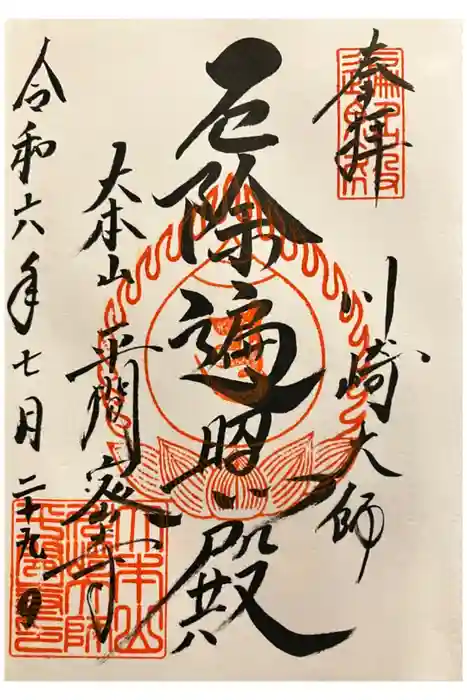 奉拝
川崎大師
厄除遍照殿
大本山
平間密寺
令和六年七月二十九日